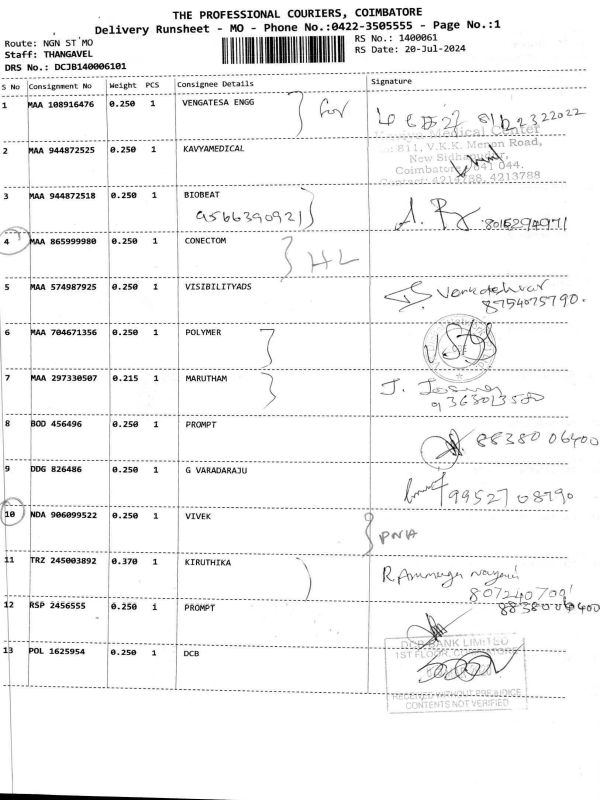 THE PROFESSIONAL COURIERS, COIMBATORE
Delivery Runsheet - MO - Phone No.:0422-3505555 - Page No.:1
Route: NGN ST MO
RS No.: 1400061
Staff: THANGAVEL
RS Date: 20-Jul-2024
DRS No.: DCJB140006101
S No Consignment No Weight PCS Consignee Details Signature
1 MAA 108916476 0.250 1 VENGATESA ENGG
Medical Center
811, V.K.K. Menon Road,
2 MAA 944872525 0.250 1 KAVYAMEDICAL
New Sidhapudur,
Coimbatore 641 044.
4213788
3 MAA 944872518 0.250 1 BIOBEAT
9566390921
8015294971
4 MAA 865999980 0.250 1 CONECTOM
HL
5 MAA 574987925 0.250 1 VISIBILITYADS Venkateshwar
8754075790.
6 MAA 704671356 0.250 1 POLYMER
7 MAA 297330507 0.215 1 MARUTHAM
9363013580
8 BOD 456496 0.250 1 PROMPT 88380 06400
9 DDG 826486 0.250 1 G VARADARAJU
99527 08790
10 NDA 906099522 0.250 1 VIVEK
PNA
11 TRZ 245003892 0.370 1 KIRUTHIKA
807240700
12 RSP 2456555 0.250 1 PROMPT
DCB BANK LIMITED
1ST FLOOR, COIMBATORE
13 POL 1625954 0.250 1 DCB
RECEIVED WITHOUT PREJUDICE
CONTENTS NOT VERIFIED